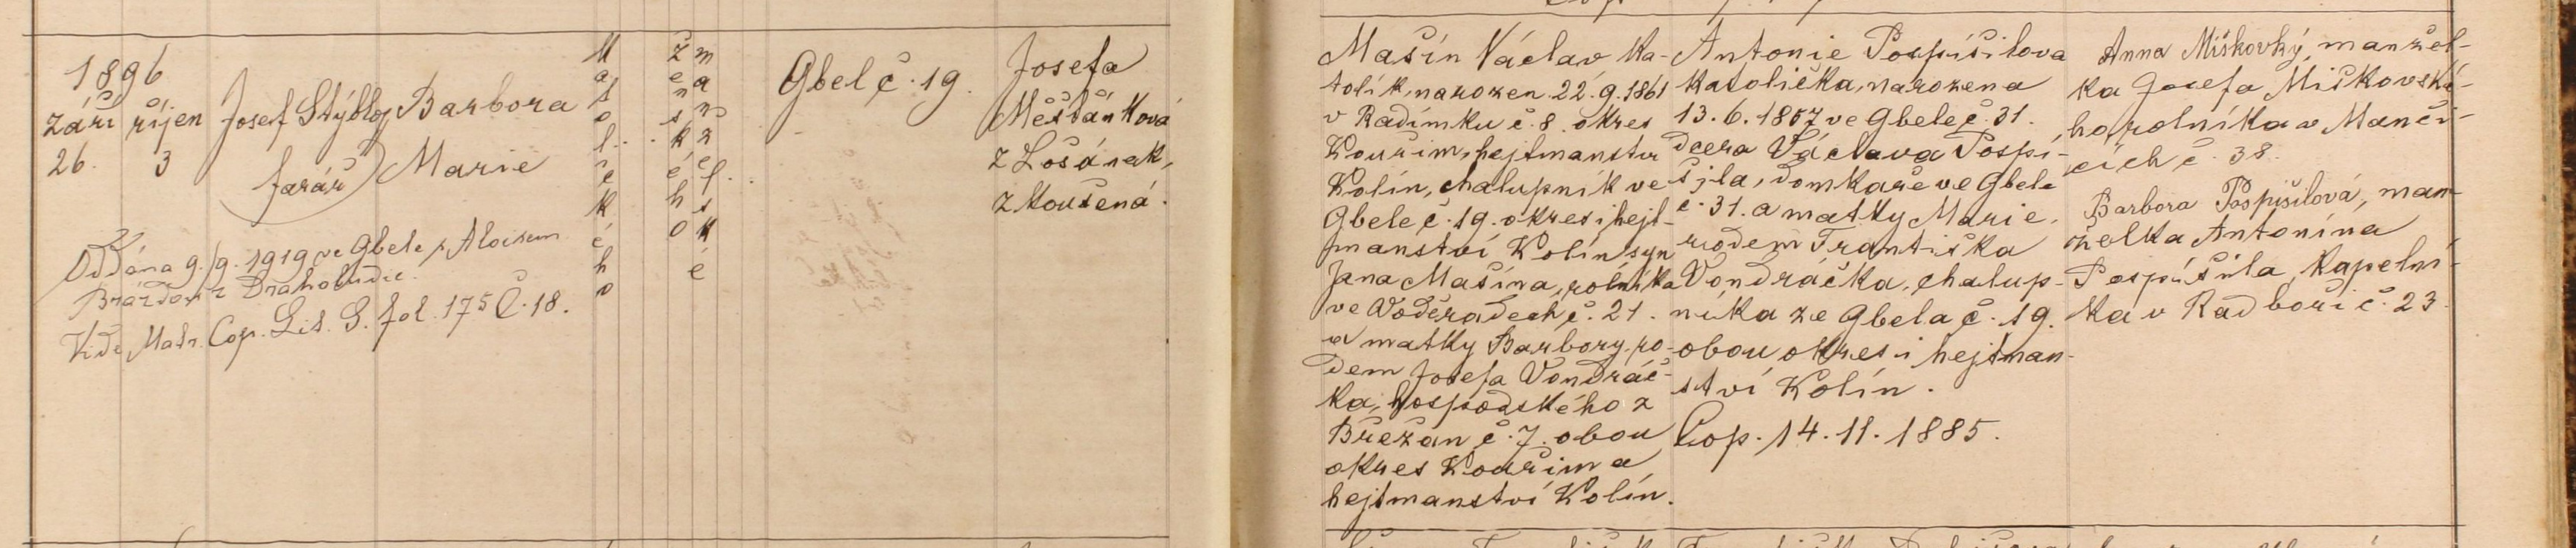 1896
září říjen
26. 3
Josef Stýblo
farář
Barbora
Marie
Katolického
ženského
manželské
Gbel č. 19.
Josefa
Měšťánková
z Lošánek,
zkoušená.
Oddána 9./9. 1919 ve Gbele s Aloisem
Brázdou z Drahobudic.
Vide Matr. Cop. Lit. G. fol. 175 Č. 18.
Mašín Václav ka-
tolík, narozen 22. 9. 1861
v Radimku č. 8. okres
Kouřim, hejtmanstv
Kolín, chalupník ve
Gbele č. 19. okres i hejt-
manství Kolín syn
Jana Mašína, rolníka
ve Voděradech č. 21.
a matky Barbory, ro-
dem Josefa Vondráč-
ka, hospodského z
Břežan č. 7. obou
okres Kouřim a
hejtmanství Kolín.
Antonie Pospíšilova
katolička, narozena
13. 6. 1857 ve Gbele č. 31.
dcera Václava Pospí-
šjla, domkaře ve Gbele
č. 31. a matky Marie,
rodem Františka
Vondráčka, chalup-
níka ze Gbela č. 19.
obou okres i hejtman-
ství Kolín.
Cop. 14. 11. 1885.
Anna Miškovský, manžel-
ka Josefa Miškovské-
ho, rolníka v Manči-
cích č. 38.
Barbora Pospíšilová, man-
želka Antonína
Pospíšila, kapelní-
ka v Radboři č. 23.